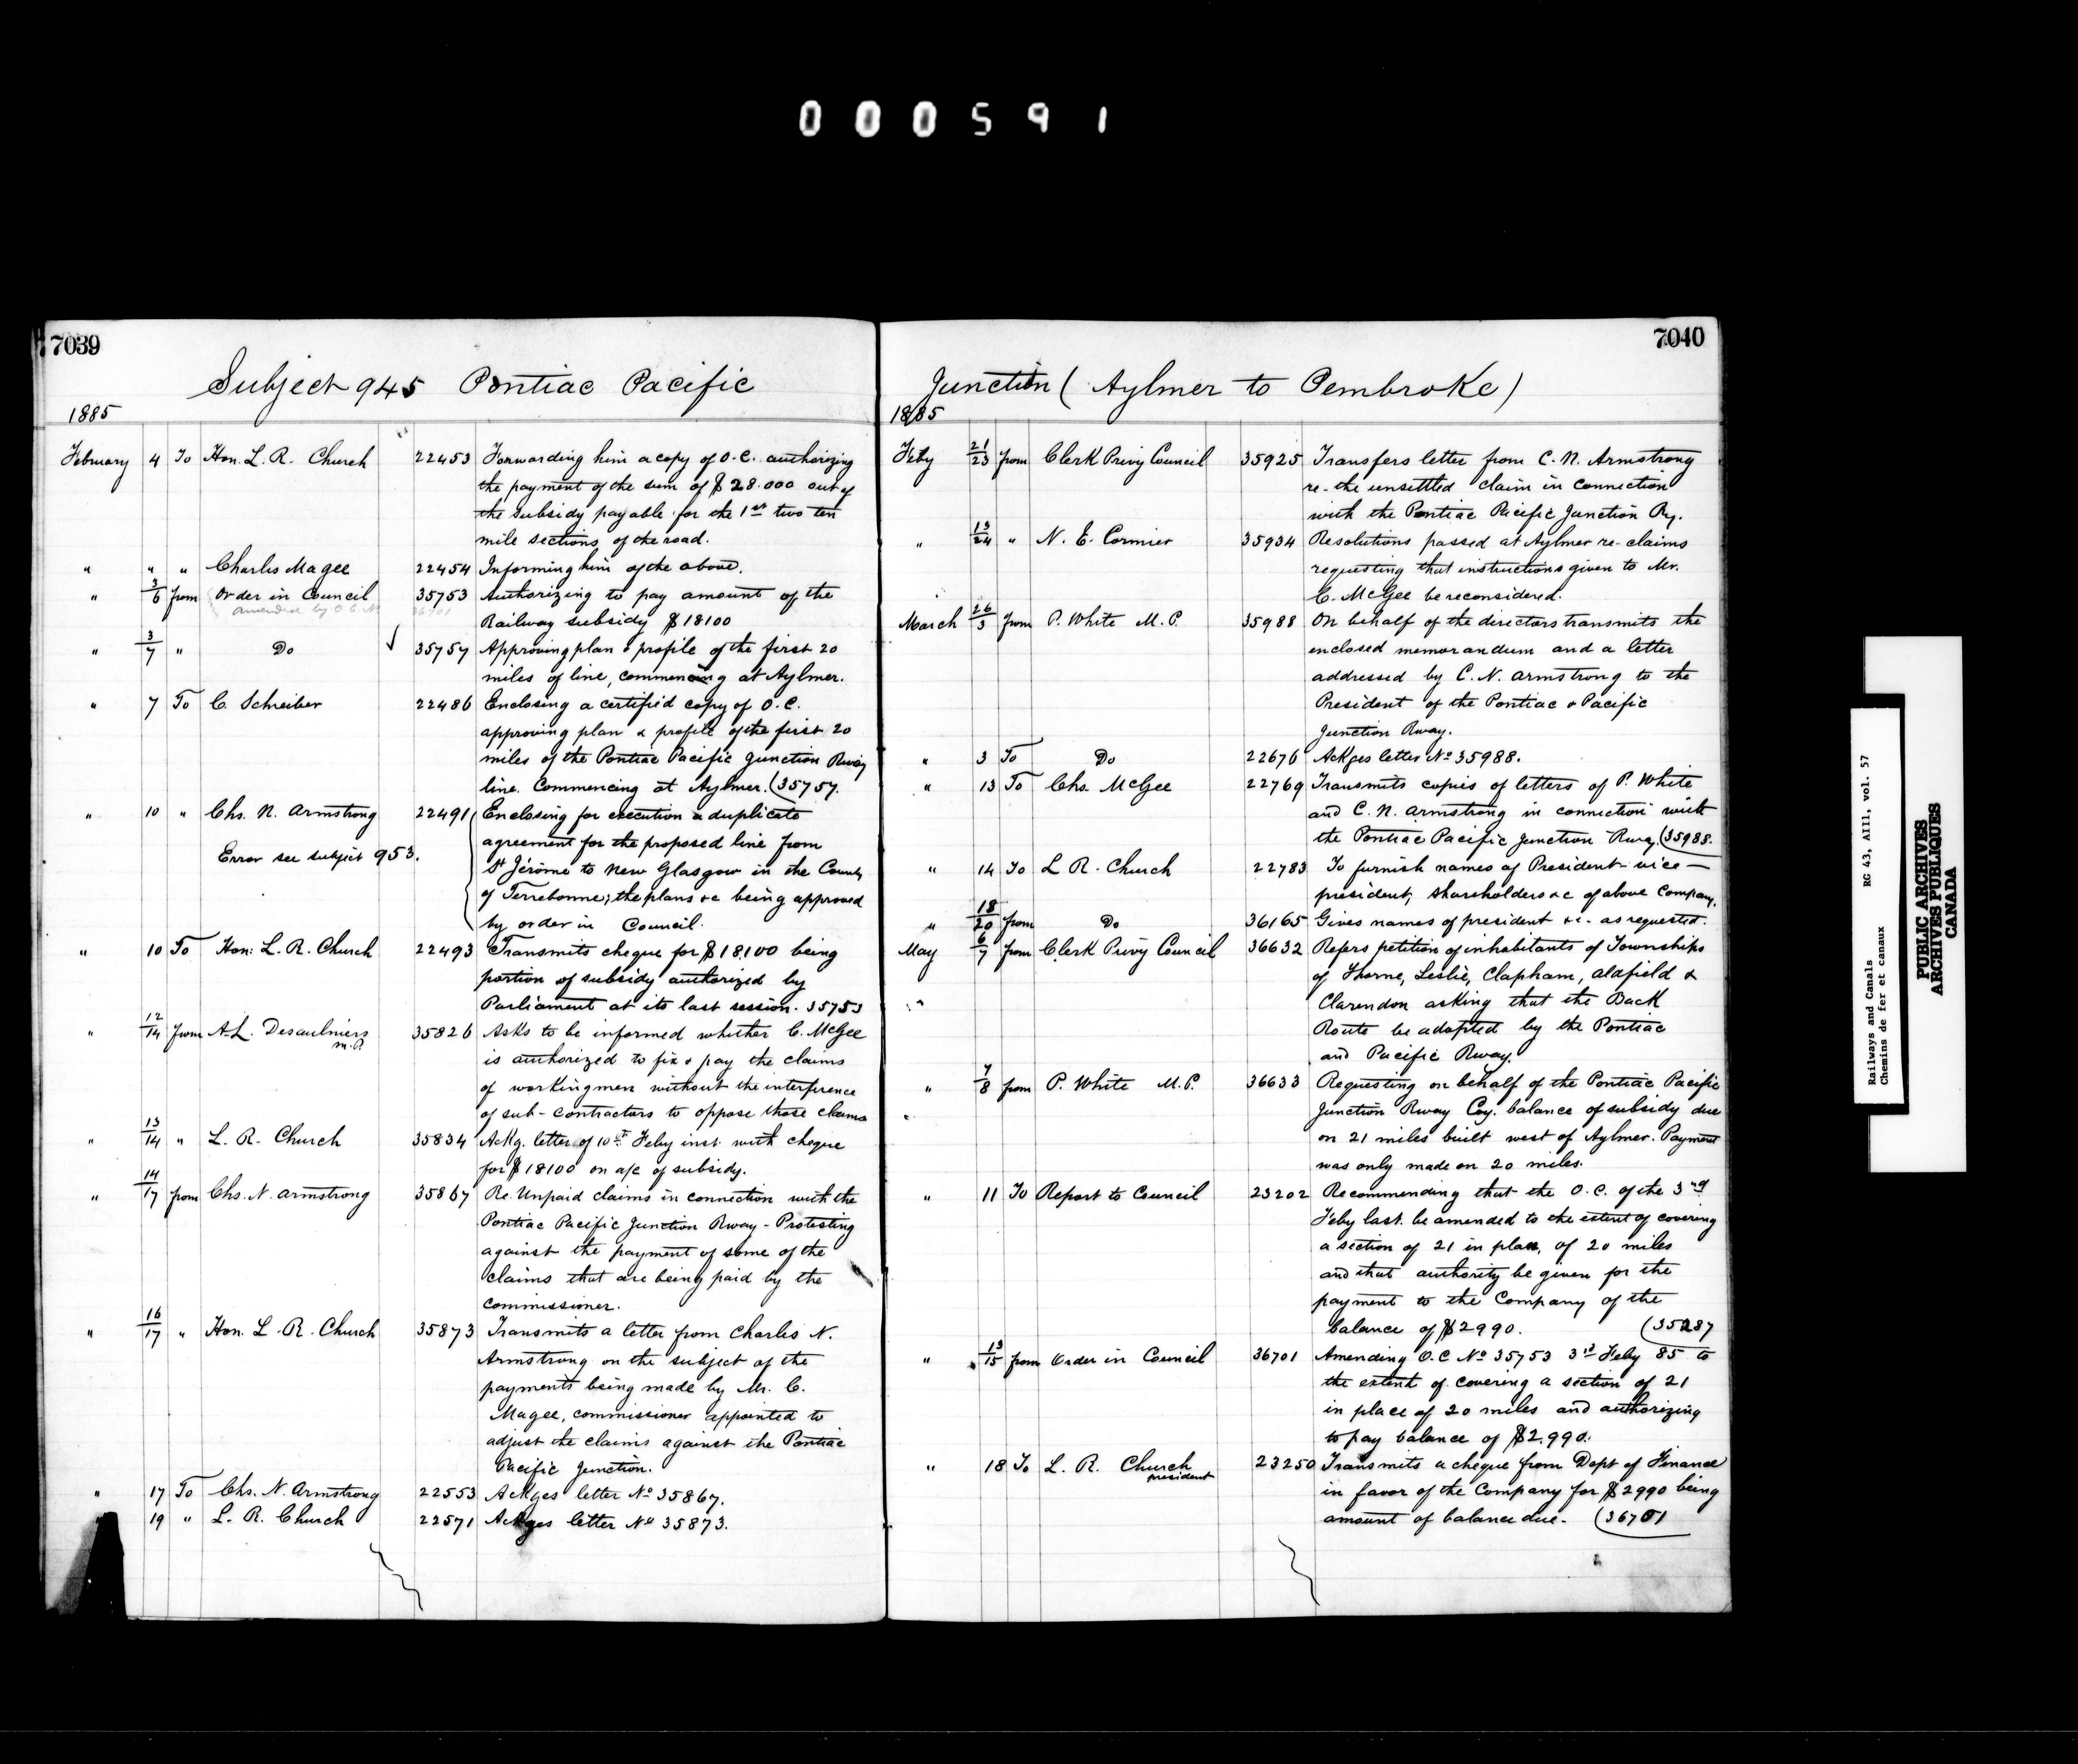 000591
7039
Subject 945 Pontiac Pacific
1885
February 4 To Hon. L. R. Church 22453 Forwarding him a copy of O.C. authorizing
the payment of the sum of $28.000 out of
the subsidy payable for the 1st two ten
mile sections of the road.
" " " Charles Magee 22454 Informing him of the above.
" 3/6 from Order in Council 35753 Authorizing to pay amount of the
amended by O C No 36701
Railway subsidy $18100
" 3/7 " Do 35757 Approving plan & profile of the first 20
miles of line, commencing at Aylmer.
" 7 To C. Schreiber 22486 Enclosing a certified copy of O.C.
approving plan & profile of the first 20
miles of the Pontiac Pacific Junction Rway
line. Commencing at Aylmer. (35757.
" 10 " Chs. N. Armstrong 22491 Enclosing for execution a duplicate
agreement for the proposed line from
Error see subject 953.
St Jérôme to New Glasgow in the County
of Terrebonne; the plans &c being approved
by order in Council.
" 10 To Hon. L. R. Church 22493 Transmits cheque for $18,100 being
portion of subsidy authorized by
Parliament at its last session. 35753
" 12/14 from A.L. Desaulniers 35826 Asks to be informed whether C. McGee
M.P.
is authorized to fix & pay the claims
of workingmen without the interference
of sub-contractors to oppose those claims
" 13/14 " L. R. Church 35834 Ackg. letter of 10th Feby inst. with cheque
for $18100 on a/c of subsidy.
" 14/17 from Chs. N. Armstrong 35867 Re. Unpaid claims in connection with the
Pontiac Pacific Junction Rway - Protesting
against the payment of some of the
claims that are being paid by the
commissioner.
" 16/17 " Hon. L. R. Church 35873 Transmits a letter from Charles N.
Armstrong on the subject of the
payments being made by Mr. C.
Magee, commissioner appointed to
adjust the claims against the Pontiac
Pacific Junction.
" 17 To Chs. N. Armstrong 22553 Ackges letter No 35867.
" 19 " L. R. Church 22571 Ackges letter No 35873.
7040
Junction (Aylmer to Pembroke)
1885
Feby 21/23 from Clerk Privy Council 35925 Transfers letter from C. N. Armstrong
re-the unsettled claim in connection
with the Pontiac Pacific Junction Ry.
" 13/24 " N. E. Cormier 35934 Resolutions passed at Aylmer re-claims
requesting that instructions given to Mr.
C. McGee be reconsidered.
March 26/3 from P. White M.P. 35988 On behalf of the directors transmits the
enclosed memorandum and a letter
addressed by C. N. Armstrong to the
President of the Pontiac & Pacific
Junction Rway.
" 3 To Do 22676 Ackges letter No 35988.
" 13 To Chs. McGee 22769 Transmits copies of letters of P. White
and C. N. Armstrong in connection with
the Pontiac Pacific Junction Rway. (35988.
" 14 To L R. Church 22783 To furnish names of President vice-
president, shareholders &c of above Company.
" 18/20 from Do 36165 Gives names of president &c. as requested.
May 6/7 from Clerk Privy Council 36632 Refers petition of inhabitants of Townships
of Thorne, Leslie, Clapham, Aldfield &
Clarendon asking that the Back
Route be adopted by the Pontiac
and Pacific Rway.
" 7/8 from P. White M.P. 36633 Requesting on behalf of the Pontiac Pacific
Junction Rway Coy. balance of subsidy due
on 21 miles built west of Aylmer. Payment
was only made on 20 miles.
" 11 To Report to Council 23202 Recommending that the O.C. of the 3rd
Feby last. be amended to the extent of covering
a section of 21 in place, of 20 miles
and that authority be given for the
payment to the Company of the
balance of $2990. (35287
" 13/15 from Order in Council 36701 Amending O.C No 35753 3rd Feby 85 to
the extent of covering a section of 21
in place of 20 miles and authorizing
to pay balance of $2.990.
" 18 To L. R. Church 23250 Transmits a cheque from Dept of Finance
president
in favor of the Company for $2990 being
amount of balance due. (36701
Railways and Canals RG 43, AIII, vol. 57
Chemins de fer et canaux
PUBLIC ARCHIVES
ARCHIVES PUBLIQUES
CANADA